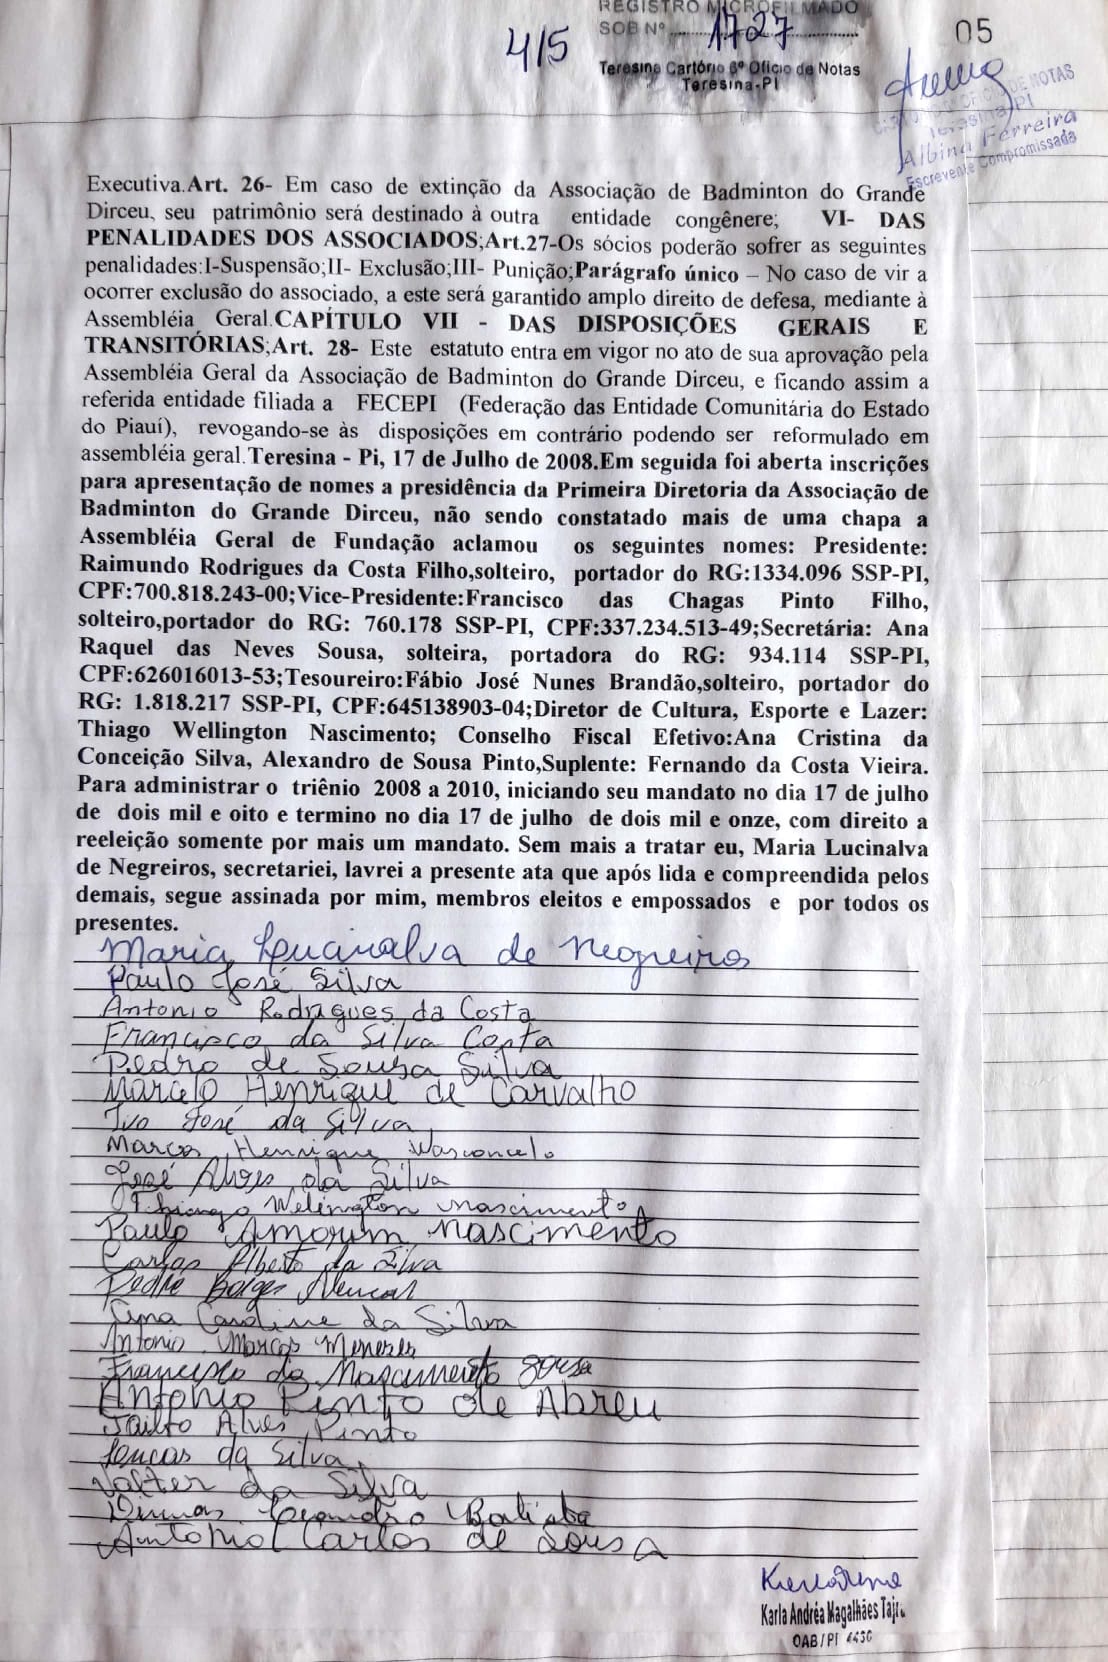 REGISTRO MICROFILMADO
SOB Nº 1727
4/5
05
Teresina Cartório 6º Ofício de Notas
Teresina-PI
OFICIO DE NOTAS
Teresina/PI
Albina Ferreira
Escrevente Compromissada
Executiva.Art. 26- Em caso de extinção da Associação de Badminton do Grande
Dirceu, seu patrimônio será destinado à outra entidade congênere; VI- DAS
PENALIDADES DOS ASSOCIADOS;Art.27-Os sócios poderão sofrer as seguintes
penalidades:I-Suspensão;II- Exclusão;III- Punição;Parágrafo único – No caso de vir a
ocorrer exclusão do associado, a este será garantido amplo direito de defesa, mediante à
Assembléia Geral.CAPÍTULO VII - DAS DISPOSIÇÕES GERAIS E
TRANSITÓRIAS;Art. 28- Este estatuto entra em vigor no ato de sua aprovação pela
Assembléia Geral da Associação de Badminton do Grande Dirceu, e ficando assim a
referida entidade filiada a FECEPI (Federação das Entidade Comunitária do Estado
do Piauí), revogando-se às disposições em contrário podendo ser reformulado em
assembléia geral.Teresina - Pi, 17 de Julho de 2008.Em seguida foi aberta inscrições
para apresentação de nomes a presidência da Primeira Diretoria da Associação de
Badminton do Grande Dirceu, não sendo constatado mais de uma chapa a
Assembléia Geral de Fundação aclamou os seguintes nomes: Presidente:
Raimundo Rodrigues da Costa Filho,solteiro, portador do RG:1334.096 SSP-PI,
CPF:700.818.243-00;Vice-Presidente:Francisco das Chagas Pinto Filho,
solteiro,portador do RG: 760.178 SSP-PI, CPF:337.234.513-49;Secretária: Ana
Raquel das Neves Sousa, solteira, portadora do RG: 934.114 SSP-PI,
CPF:626016013-53;Tesoureiro:Fábio José Nunes Brandão,solteiro, portador do
RG: 1.818.217 SSP-PI, CPF:645138903-04;Diretor de Cultura, Esporte e Lazer:
Thiago Wellington Nascimento; Conselho Fiscal Efetivo:Ana Cristina da
Conceição Silva, Alexandro de Sousa Pinto,Suplente: Fernando da Costa Vieira.
Para administrar o triênio 2008 a 2010, iniciando seu mandato no dia 17 de julho
de dois mil e oito e termino no dia 17 de julho de dois mil e onze, com direito a
reeleição somente por mais um mandato. Sem mais a tratar eu, Maria Lucinalva
de Negreiros, secretariei, lavrei a presente ata que após lida e compreendida pelos
demais, segue assinada por mim, membros eleitos e empossados e por todos os
presentes.
Maria Lucinalva de Negreiros
Paulo José Silva
Antonio Rodrigues da Costa
Francisco da Silva Costa
Pedro de Sousa Silva
Marcelo Henrique de Carvalho
Ivo José da Silva
Marcos Henrique Vasconcelo
José Alves da Silva
Thiango Welington nascimento
Paulo Amorim Nascimento
Carlos Alberto da Silva
Pedro Borges
Ana Caroline da Silva
Antonio Marcos Menezes
Francisco do Nascimento Sousa
Antonio Pinto de Abreu
Jailto Alves Pinto
Lucas da Silva
Valter da Silva
Leandro Batista
Antonio Carlos de Sousa
Karla Andréa Magalhães
OAB/PI 4450